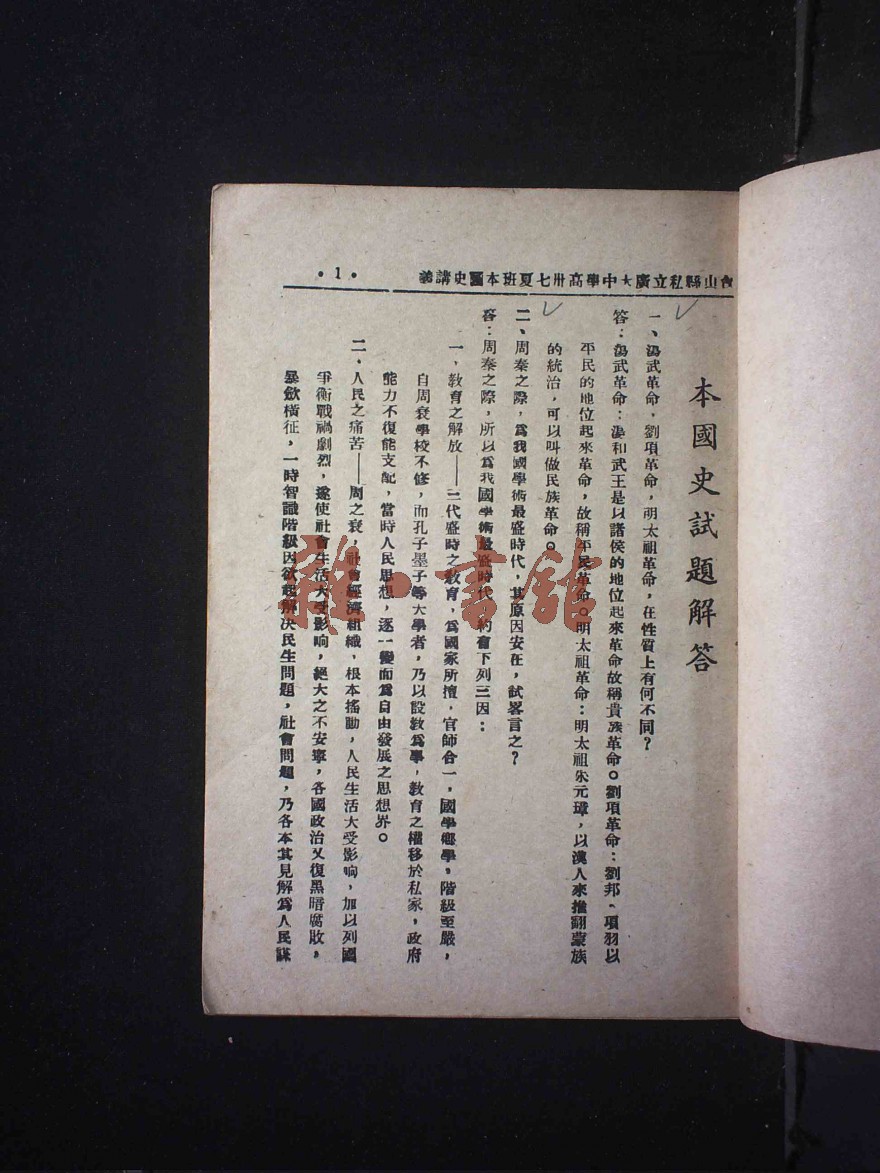 台山縣私立廣大中學高卅七夏班本國史講義
•1•
本國史試題解答
一、湯武革命，劉項革命，明太祖革命，在性質上有何不同？
答：湯武革命：湯和武王是以諸侯的地位起來革命故稱貴族革命。劉項革命：劉邦、項羽以
平民的地位起來革命，故稱平民革命。明太祖革命：明太祖朱元璋，以漢人來推翻蒙族
的統治，可以叫做民族革命。
二、周秦之際，爲我國學術最盛時代，其原因安在，試畧言之？
答：周秦之際，所以爲我國學術最盛時代，約有下列三因：
一，教育之解放——三代盛時之教育，爲國家所擅，官師合一，國學鄉學，階級至嚴，
自周衰學校不修，而孔子墨子等大學者，乃以設教爲學，教育之權移於私家，政府
能力不復能支配，當時人民思想，逐一變而爲自由發展之思想界。
二，人民之痛苦——周之衰，社會經濟組織，根本搖動，人民生活大受影响，加以列國
爭衡戰禍劇烈，遂使社會生活大受影响，絕大之不安寧，各國政治又復黑暗腐敗，
暴斂橫征，一時智識階級因欲起解決民生問題，社會問題，乃各本其見解爲人民謀
雜·書館